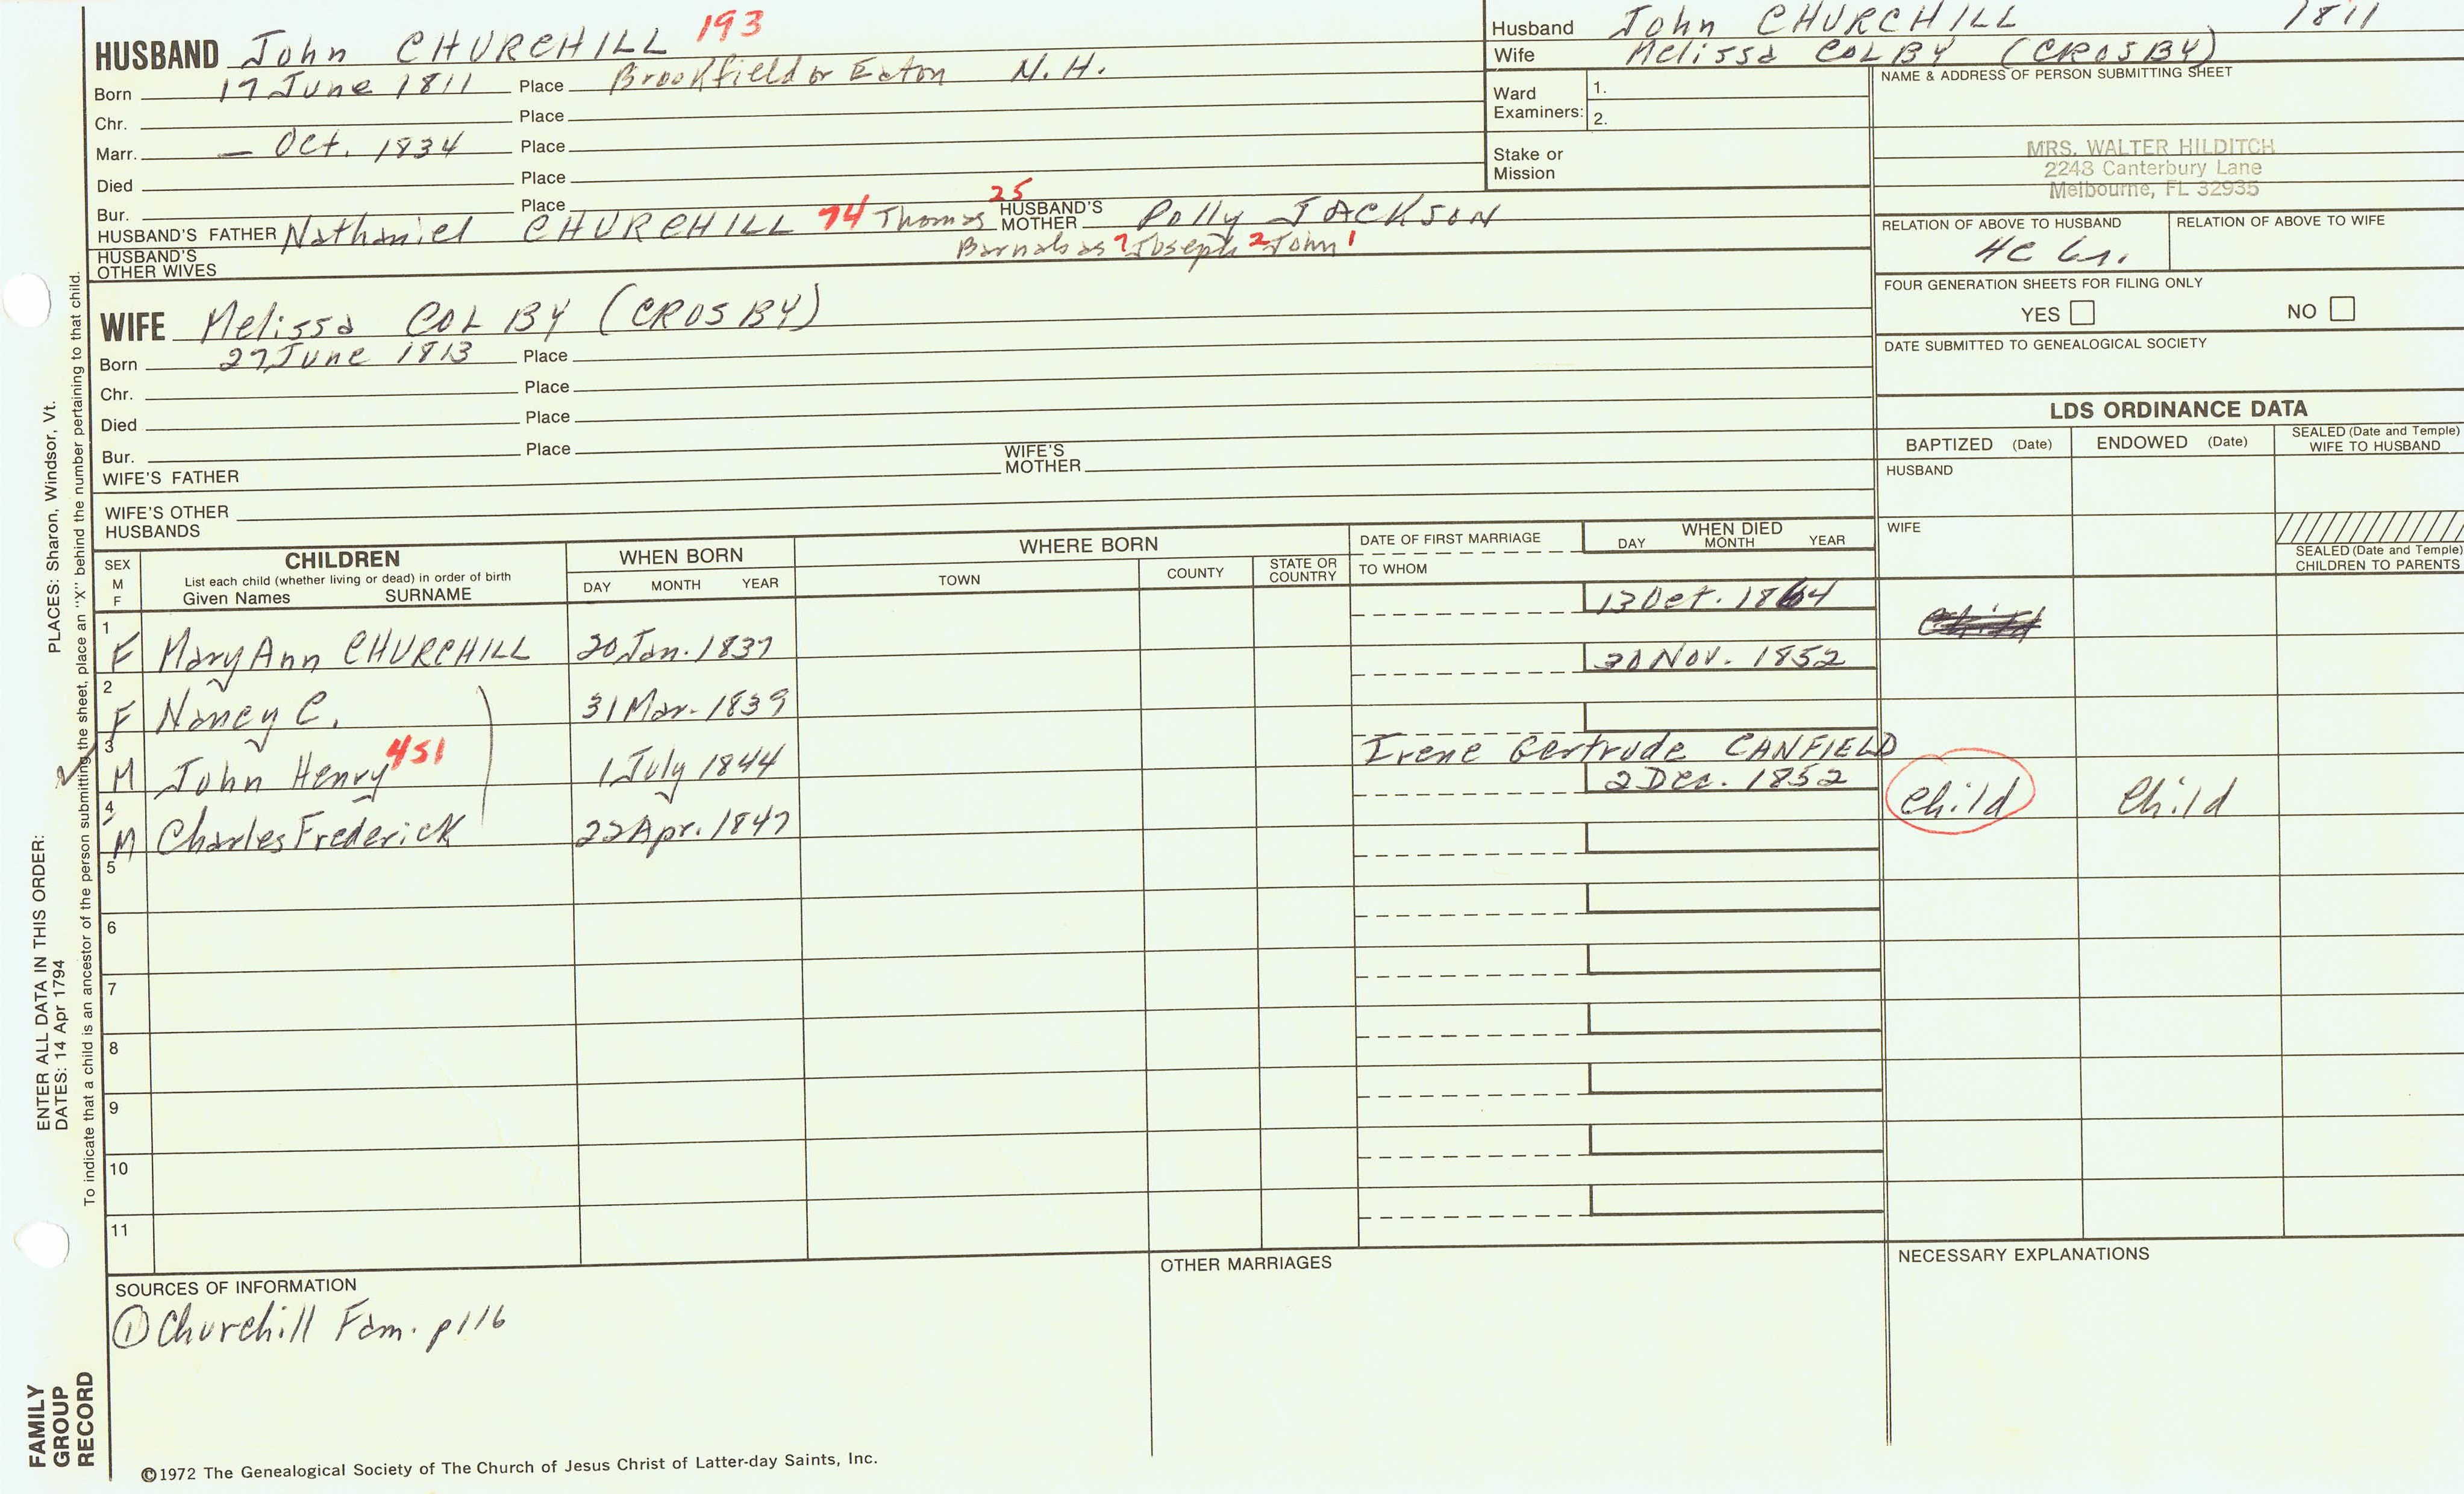 HUSBAND John CHURCHILL 193
Born 17 June 1811 Place Brookfield or Eaton N.H.
Chr. Place
Marr. — Oct. 1834 Place
Died Place
Bur. Place
HUSBAND'S FATHER Nathaniel CHURCHILL 74 Thomas 25 HUSBAND'S MOTHER Polly JACKSON
Barnabas 7 Joseph 2 John 1
HUSBAND'S OTHER WIVES
Husband John CHURCHILL 1811
Wife Melissa COLBY (CROSBY)
Ward Examiners: 1.
2.
Stake or Mission
NAME & ADDRESS OF PERSON SUBMITTING SHEET
MRS. WALTER HILDITCH
2248 Canterbury Lane
Melbourne, FL 32935
RELATION OF ABOVE TO HUSBAND RELATION OF ABOVE TO WIFE
4C
FOUR GENERATION SHEETS FOR FILING ONLY
YES NO
DATE SUBMITTED TO GENEALOGICAL SOCIETY
WIFE Melissa COLBY (CROSBY)
Born 27 June 1813 Place
Chr. Place
Died Place
Bur. Place
WIFE'S FATHER WIFE'S MOTHER
WIFE'S OTHER HUSBANDS
LDS ORDINANCE DATA
BAPTIZED (Date) ENDOWED (Date) SEALED (Date and Temple) WIFE TO HUSBAND
HUSBAND
WIFE
SEALED (Date and Temple) CHILDREN TO PARENTS
SEX M F
CHILDREN
List each child (whether living or dead) in order of birth
Given Names SURNAME
WHEN BORN
DAY MONTH YEAR
WHERE BORN
TOWN COUNTY STATE OR COUNTRY
DATE OF FIRST MARRIAGE
TO WHOM
WHEN DIED
DAY MONTH YEAR
1 F Mary Ann CHURCHILL 20 Jan. 1837 13 Oct. 1864
2 F Nancy C. 31 Mar. 1839 30 Nov. 1852
3 M John Henry 451 1 July 1844 Irene Gertrude CANFIELD
4 M Charles Frederick 22 Apr. 1847 2 Dec. 1852 Child Child
5
6
7
8
9
10
11
SOURCES OF INFORMATION
① Churchill Fam. p116
OTHER MARRIAGES
NECESSARY EXPLANATIONS
©1972 The Genealogical Society of The Church of Jesus Christ of Latter-day Saints, Inc.
FAMILY GROUP RECORD
ENTER ALL DATA IN THIS ORDER:
DATES: 14 Apr 1794
PLACES: Sharon, Windsor, Vt.
To indicate that a child is an ancestor of the person submitting the sheet, place an "X" behind the number pertaining to that child.